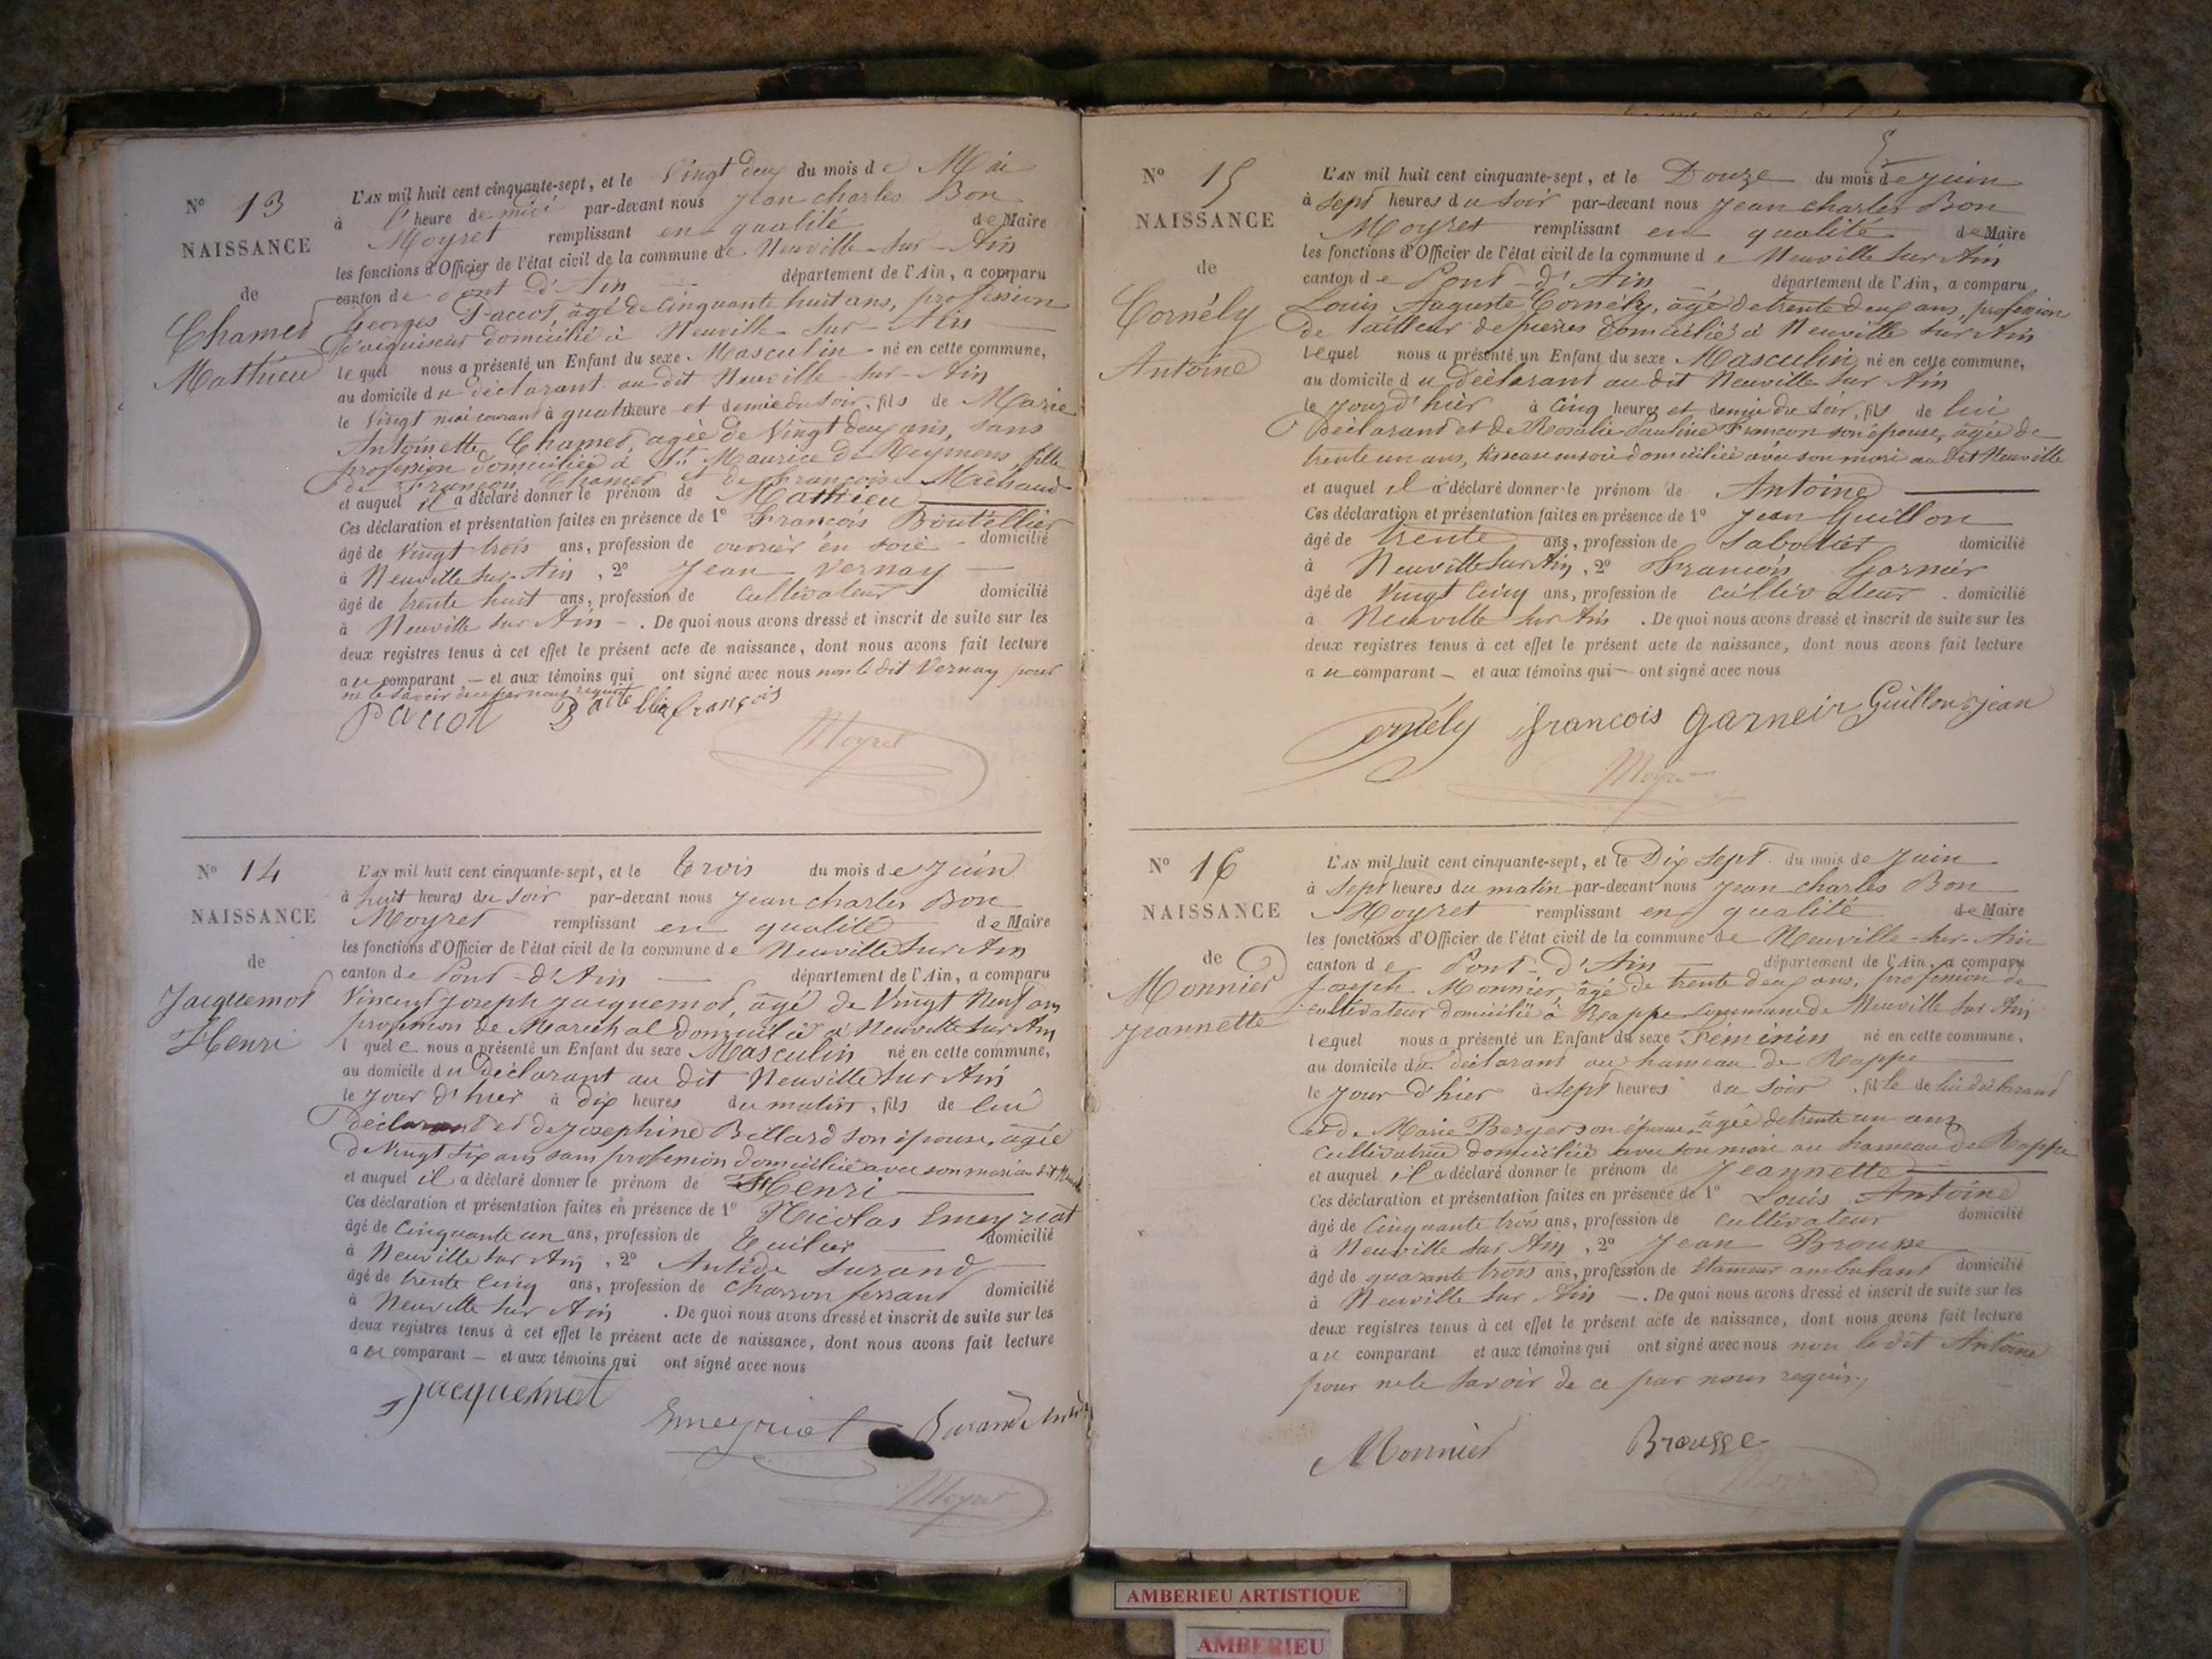 N° 13
NAISSANCE
de
Chamet
Mathieu
L'AN mil huit cent cinquante-sept, et le Vingt deux du mois de Mai
à l'heure de midi par-devant nous Jean charles Bon
Moyret remplissant en qualité de Maire
les fonctions d'Officier de l'état civil de la commune de Neuville-sur-Ain
canton de Pont d'Ain département de l'Ain, a comparu
Georges Paccot, âgé de cinquante huit ans, profession
d'aiguiseur domicilié à Neuville-sur-Ain
lequel nous a présenté un Enfant du sexe Masculin né en cette commune,
au domicile du déclarant au dit Neuville-sur-Ain
le Vingt mai courant à quatre heure et demie du soir, fils de Marie
Antoinette Chamet, agée de Vingt deux ans, sans
profession domiciliée à St. Maurice de Reymens, fille
de François Chamet et de Françoise Michaud
et auquel il a déclaré donner le prénom de Mathieu
Ces déclaration et présentation faites en présence de 1° François Bouteillier
âgé de Vingt trois ans, profession de ouvrier en soie domicilié
à Neuville sur-Ain, 2° Jean Vernay
âgé de trente huit ans, profession de cultivateur domicilié
à Neuville sur Ain -. De quoi nous avons dressé et inscrit de suite sur les
deux registres tenus à cet effet le présent acte de naissance, dont nous avons fait lecture
au comparant - et aux témoins qui ont signé avec nous non le dit Vernay pour
ne le savoir de ce par nous requis
Paccot François
Moyret
N° 14
NAISSANCE
de
Jacquemot
Henri
L'AN mil huit cent cinquante-sept, et le trois du mois de Juin
à huit heures du soir par-devant nous Jean charles Bon
Moyret remplissant en qualité de Maire
les fonctions d'Officier de l'état civil de la commune de Neuville sur Ain
canton de Pont-d'Ain département de l'Ain, a comparu
Vincent Joseph Jacquemot, âgé de Vingt Neuf ans
profession de Maréchal domicilié à Neuville sur Ain
lequel nous a présenté un Enfant du sexe Masculin né en cette commune,
au domicile du déclarant au dit Neuville sur Ain
le jour d'hier à dix heures du matin, fils de lui
déclarant et de Josephine Billard son épouse, agée
de Vingt six ans sans profession domiciliée avec son mari au dit Neuville
et auquel il a déclaré donner le prénom de Henri
Ces déclaration et présentation faites en présence de 1° Nicolas Emeyriat
âgé de Cinquante un ans, profession de tuilier domicilié
à Neuville sur Ain, 2° Antide Durand
âgé de trente cinq ans, profession de charron ferrant domicilié
à Neuville sur Ain. De quoi nous avons dressé et inscrit de suite sur les
deux registres tenus à cet effet le présent acte de naissance, dont nous avons fait lecture
au comparant - et aux témoins qui ont signé avec nous
Jacquemot
Emeyriat Durand
Moyret
5
N° 15
NAISSANCE
de
Cornély
Antoine
L'AN mil huit cent cinquante-sept, et le Douze du mois de juin
à Sept heures du soir par-devant nous Jean charles Bon
Moyret remplissant en qualité de Maire
les fonctions d'Officier de l'état civil de la commune de Neuville sur Ain
canton de Pont-d'Ain département de l'Ain, a comparu
Louis Auguste Cornély, âgé de trente deux ans, profession
de tailleur de pierres domicilié à Neuville sur Ain
lequel nous a présenté un Enfant du sexe Masculin né en cette commune,
au domicile du déclarant au dit Neuville sur Ain
le jourd'hier à cinq heures et demie du soir, fils de lui
Déclarant et de Rosalie Pauline Françon son épouse, âgée de
trente un ans, tisseuse en soie domiciliée avec son mari au dit Neuville
et auquel il a déclaré donner le prénom de Antoine
Ces déclaration et présentation faites en présence de 1° Jean Guillon
âgé de trente ans, profession de Sabotier domicilié
à Neuville sur Ain, 2° François Garnier
âgé de Vingt Cinq ans, profession de cultivateur domicilié
à Neuville sur Ain. De quoi nous avons dressé et inscrit de suite sur les
deux registres tenus à cet effet le présent acte de naissance, dont nous avons fait lecture
au comparant - et aux témoins qui - ont signé avec nous
Cornély françois garneir Guillon jean
Moyret
N° 16
NAISSANCE
de
Monnier
Jeannette
L'AN mil huit cent cinquante-sept, et le Dix Sept du mois de Juin
à Sept heures du matin par-devant nous Jean charles Bon
Moyret remplissant en qualité de Maire
les fonctions d'Officier de l'état civil de la commune de Neuville-sur-Ain
canton de Pont-d'Ain département de l'Ain, a comparu
Joseph Monnier, âgé de trente deux ans, profession de
cultivateur domicilié à Rappe Commune de Neuville sur Ain
lequel nous a présenté un Enfant du sexe Féminin né en cette commune,
au domicile du déclarant au hameau de Rappe
le jour d'hier à sept heures du soir, fille de lui déclarant
et de Marie Berger son épouse, âgée de trente un ans
Cultivatrice domiciliée avec son mari au hameau de Rappe
et auquel il a déclaré donner le prénom de Jeannette
Ces déclaration et présentation faites en présence de 1° Louis Antoine
âgé de Cinquante trois ans, profession de cultivateur domicilié
à Neuville sur Ain, 2° Jean Brousse
âgé de quarante trois ans, profession de Etameur ambulant domicilié
à Neuville sur Ain -. De quoi nous avons dressé et inscrit de suite sur les
deux registres tenus à cet effet le présent acte de naissance, dont nous avons fait lecture
au comparant et aux témoins qui ont signé avec nous non le dit Antoine
pour ne le savoir de ce par nous requis.
Monnier Brousse
AMBERIEU ARTISTIQUE
AMBERIEU